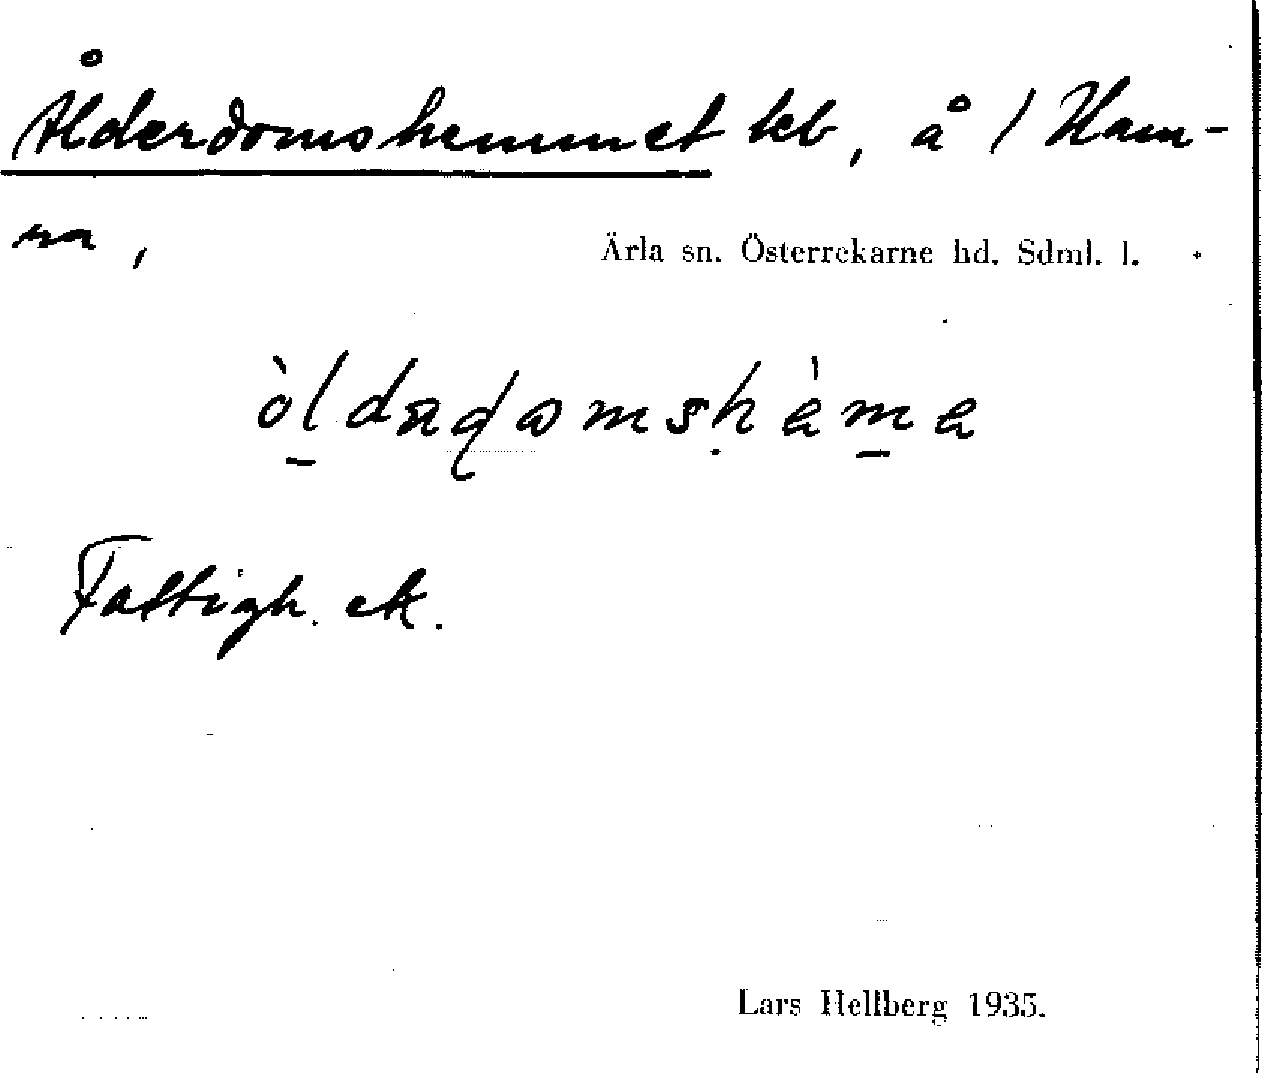 Ålderdomshemmet beb, å 1 Ham-
ra,
Ärla sn. Österrekarne hd. Sdml. l.
Fattigh. ek.
Lars Hellberg 1935.